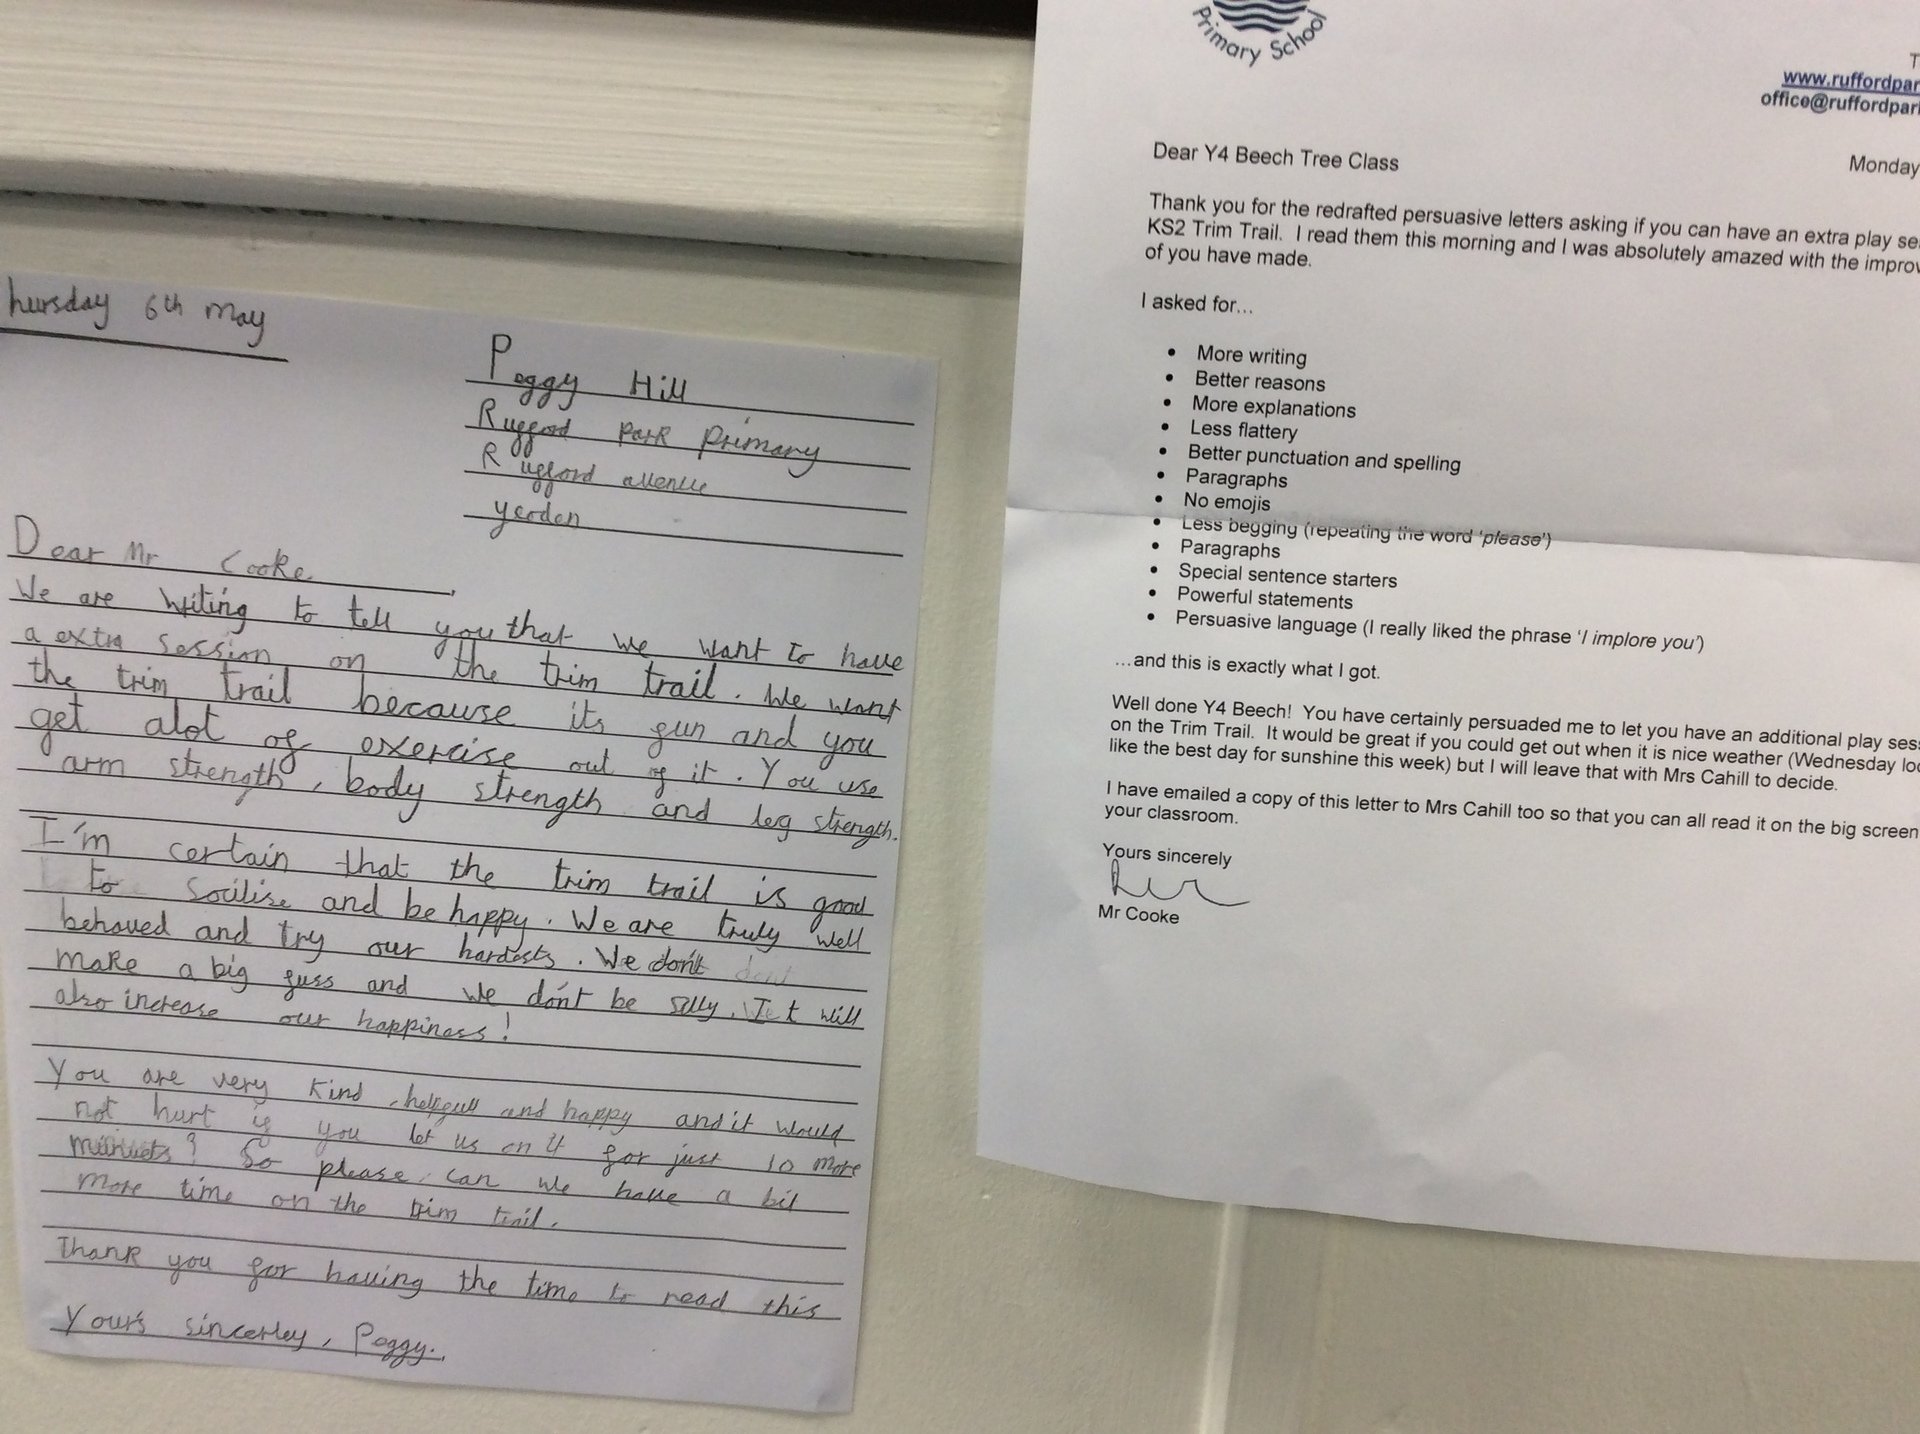 hursday 6th May
Peggy Hill
Rufford park primary
Rufford avenue
yeadon
Dear Mr Cooke,
We are writing to tell you that we want to have
a extra session on the trim trail. We want
the trim trail because its fun and you
get alot of exercise out of it. You use
arm strength, body strength and leg strength.
I'm certain that the trim trail is good
to socilise and be happy. We are truly well
behaved and try our hardests. We don't
make a big fuss and we don't be silly. It will
also increase our happiness!
You are very kind, helpfull and happy and it would
not hurt if you let us on it for just 10 more
minuets? So please can we have a bit
more time on the trim trail.
Thank you for having the time to read this
Your's sincerley, Peggy.
Primary School
T
www.ruffordpar
office@ruffordpar
Monday
Dear Y4 Beech Tree Class
Thank you for the redrafted persuasive letters asking if you can have an extra play se
KS2 Trim Trail. I read them this morning and I was absolutely amazed with the improv
of you have made.
I asked for...
• More writing
• Better reasons
• More explanations
• Less flattery
• Better punctuation and spelling
• Paragraphs
• No emojis
• Less begging (repeating the word 'please')
• Paragraphs
• Special sentence starters
• Powerful statements
• Persuasive language (I really liked the phrase 'I implore you')
...and this is exactly what I got.
Well done Y4 Beech! You have certainly persuaded me to let you have an additional play sess
on the Trim Trail. It would be great if you could get out when it is nice weather (Wednesday loo
like the best day for sunshine this week) but I will leave that with Mrs Cahill to decide.
I have emailed a copy of this letter to Mrs Cahill too so that you can all read it on the big screen
your classroom.
Yours sincerely
Mr Cooke